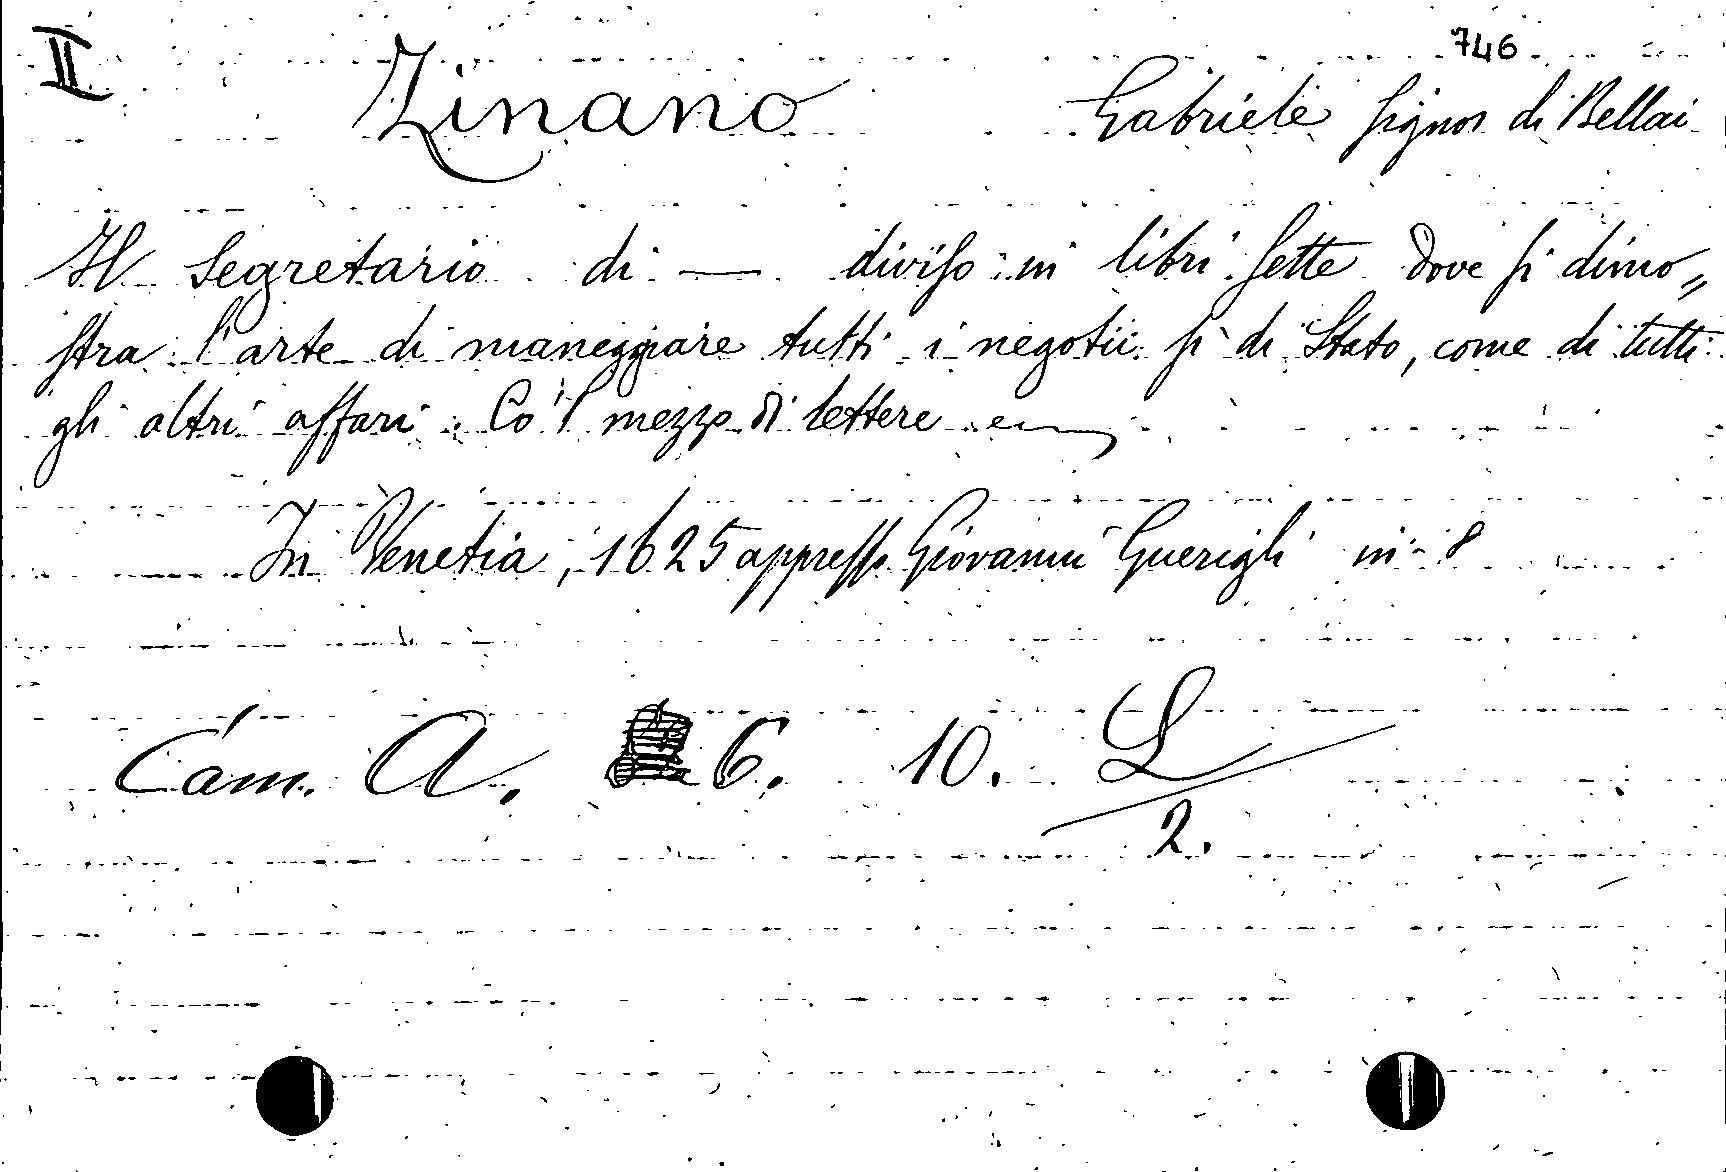 II
746
Zinano Gabriele ſignor di Bellai
Il Segretario di — diviſo in libri ſette dove ſi dimo„
ſtra l'arte di maneggiare tutti i negotii ſi di Stato, come di tutti
gli altri affari. Co'l mezzo di lettere
In Venetia, 1625 appreſſo Giovanni Guerigli in-8
Cam. A. 6. 10. L/2.